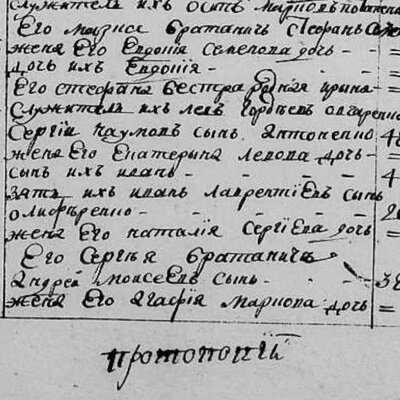 служитель ихъ осипъ марковъ
Его мацна братаничъ Стефанъ
жена Его Евдокия Семенова дочь - -
дочь ихъ Евдокия - - =
Его стефана сестра родная ирина -
служитель ихъ левъ
Сергий наумовъ сынъ антоненко 4
жена Его Екатерина левова дочь - =
сынъ ихъ иванъ - - - 4
зять ихъ иванъ лаврентиевъ сынъ
олиференко - - - - - 2
жена Его наталия Сергиева дочь =
Его Сергия братаничъ
андрей моисеевъ сынъ - - 3
жена Его агафия маркова дочь =
протопопий